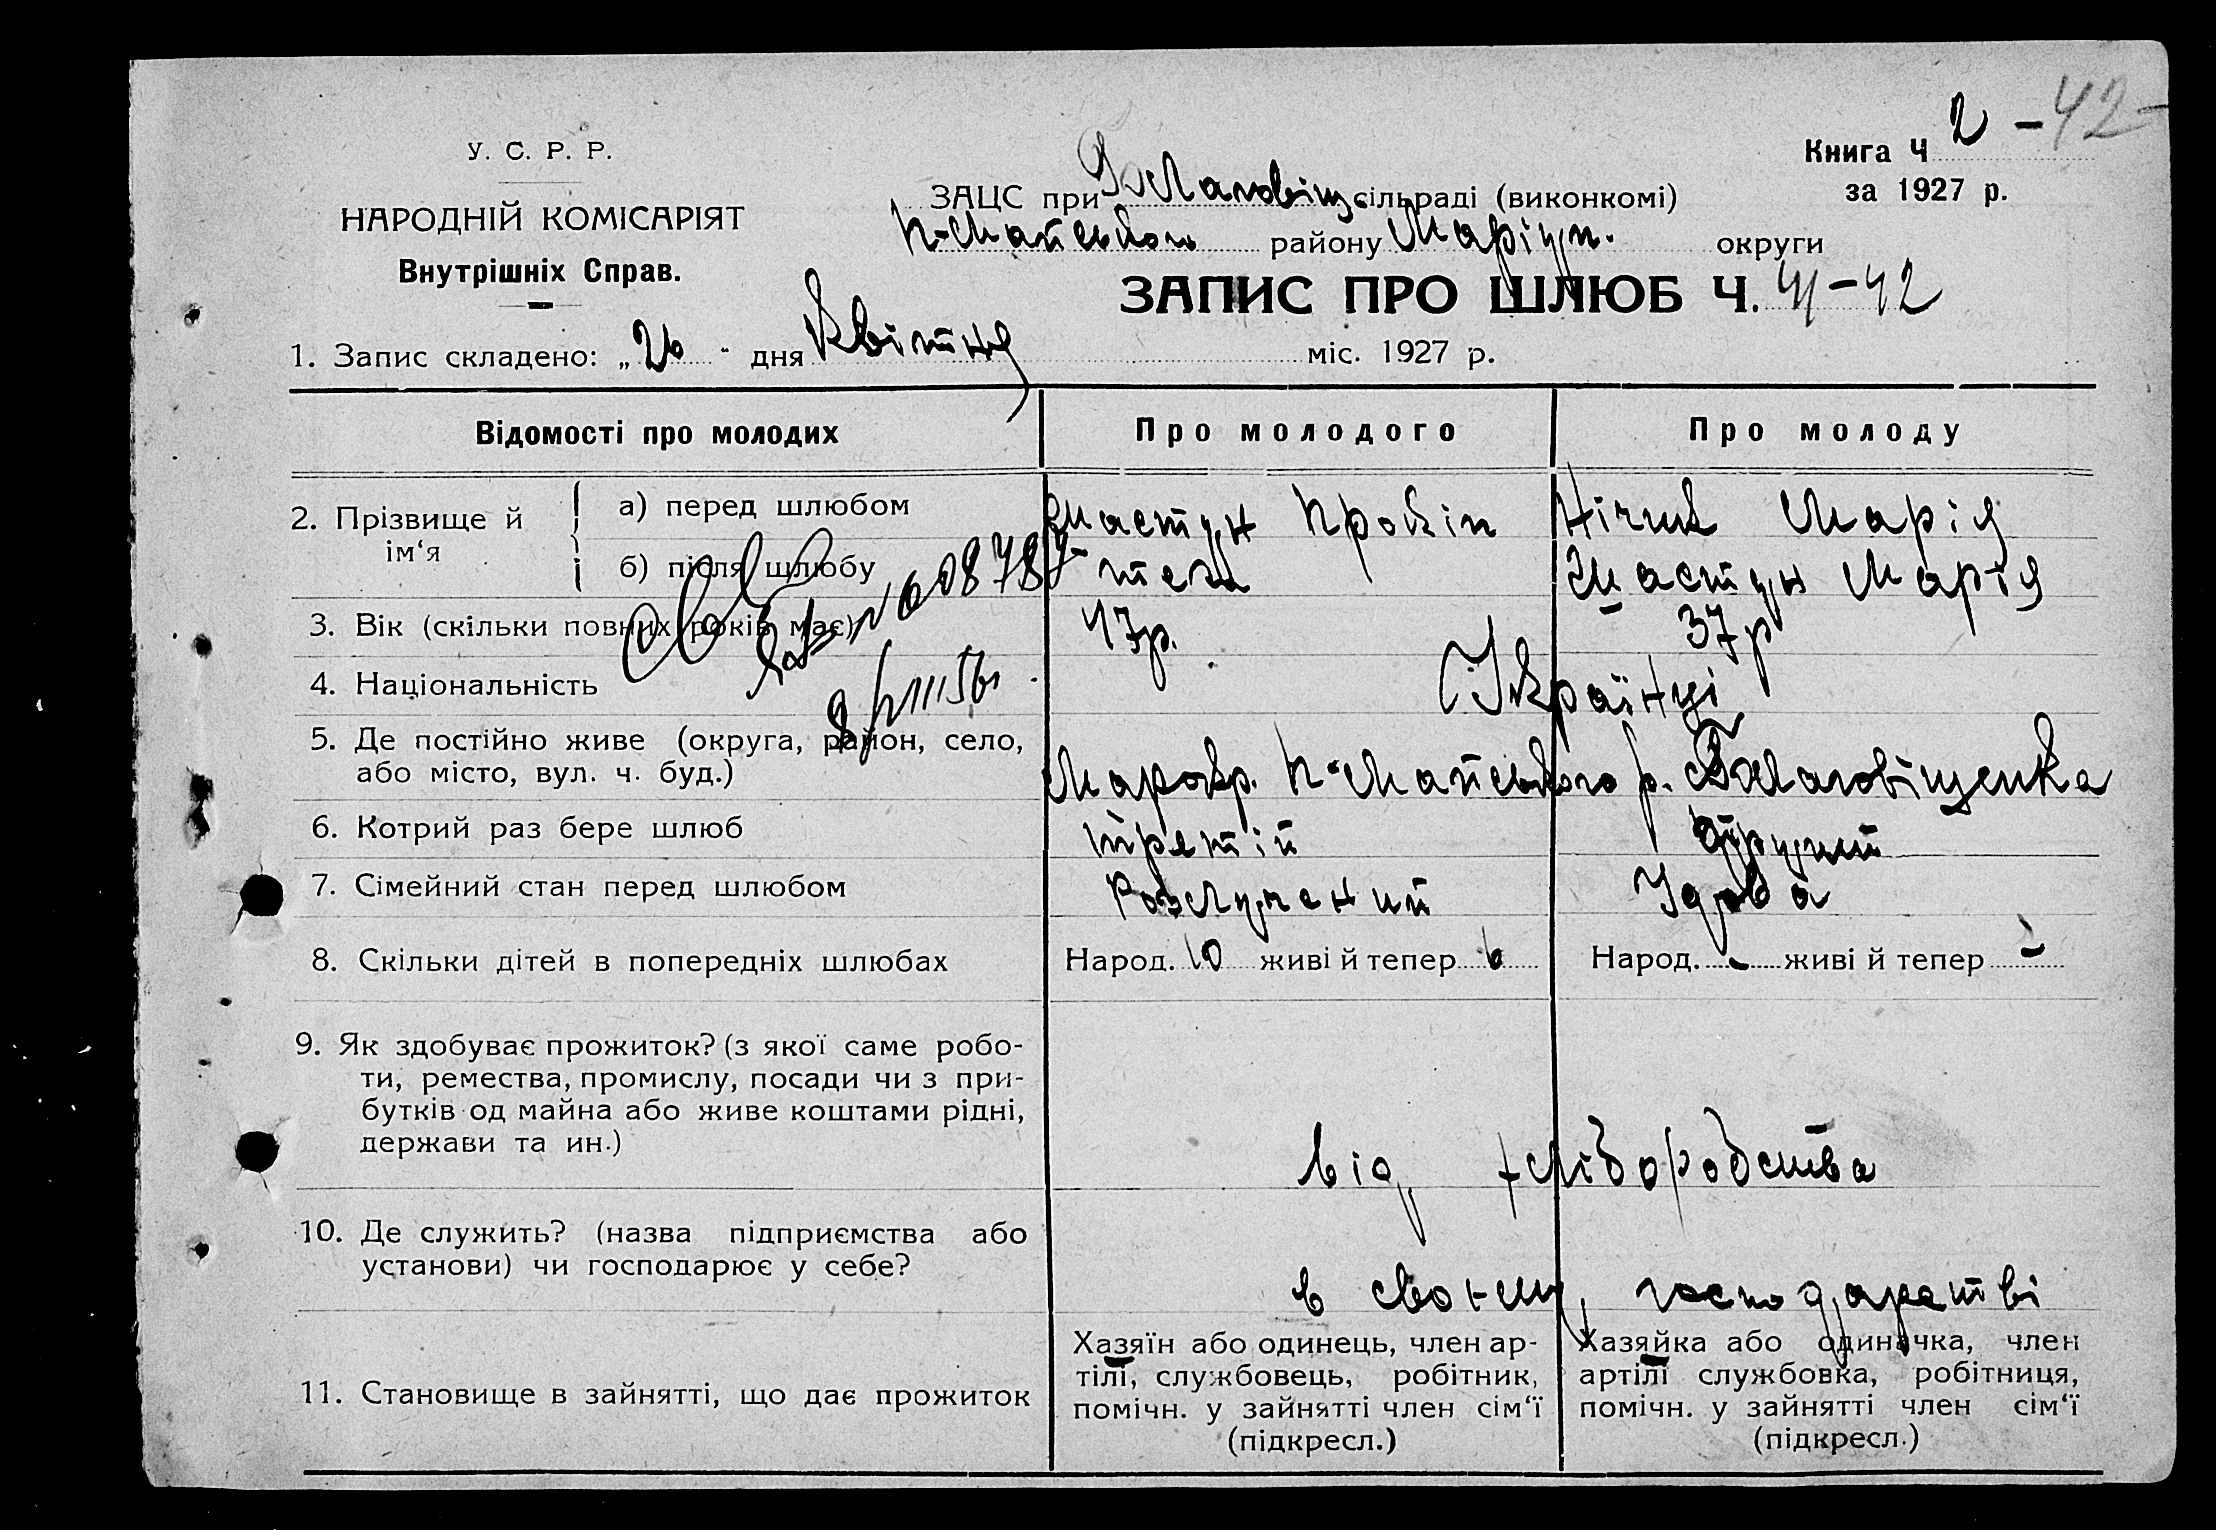 Книга Ч 2 - 42-
У. С. Р. Р.
за 1927 р.
НАРОДНІЙ КОМІСАРІЯТ
Внутрішніх Справ.
ЗАЦС при Благовіщ. сільраді (виконкомі)
К-Матському району Маріуп. округи
ЗАПИС ПРО ШЛЮБ Ч. 41-42
1. Запис складено: „26" дня Квітня міс. 1927 р.
Відомості про молодих
Про молодого
Про молоду
2. Прізвище й ім‘я
а) перед шлюбом
Шастун Прокіп
Марія
б) після шлюбу
теж
Шастун Марія
3. Вік (скільки повних років має)
47р.
37р
4. Національність
Українці
5. Де постійно живе (округа, район, село,
або місто, вул. ч. буд.)
р. Благовіщенка
6. Котрий раз бере шлюб
третій
другий
7. Сімейний стан перед шлюбом
Розлучений
Удова
8. Скільки дітей в попередніх шлюбах
Народ. 10 живі й тепер 6
Народ. - живі й тепер -
9. Як здобуває прожиток? (з якої саме робо-
ти, ремества, промислу, посади чи з при-
бутків од майна або живе коштами рідні,
держави та ин.)
від хліборобства
10. Де служить? (назва підприємства або
установи) чи господарює у себе?
в своєму господарстві
11. Становище в зайнятті, що дає прожиток
Хазяїн або одинець, член ар-
тілі, службовець, робітник,
помічн. у зайнятті член сім‘ї
(підкресл.)
Хазяйка або одиначка, член
артілі службовка, робітниця,
помічн. у зайнятті член сім‘ї
(підкресл.)